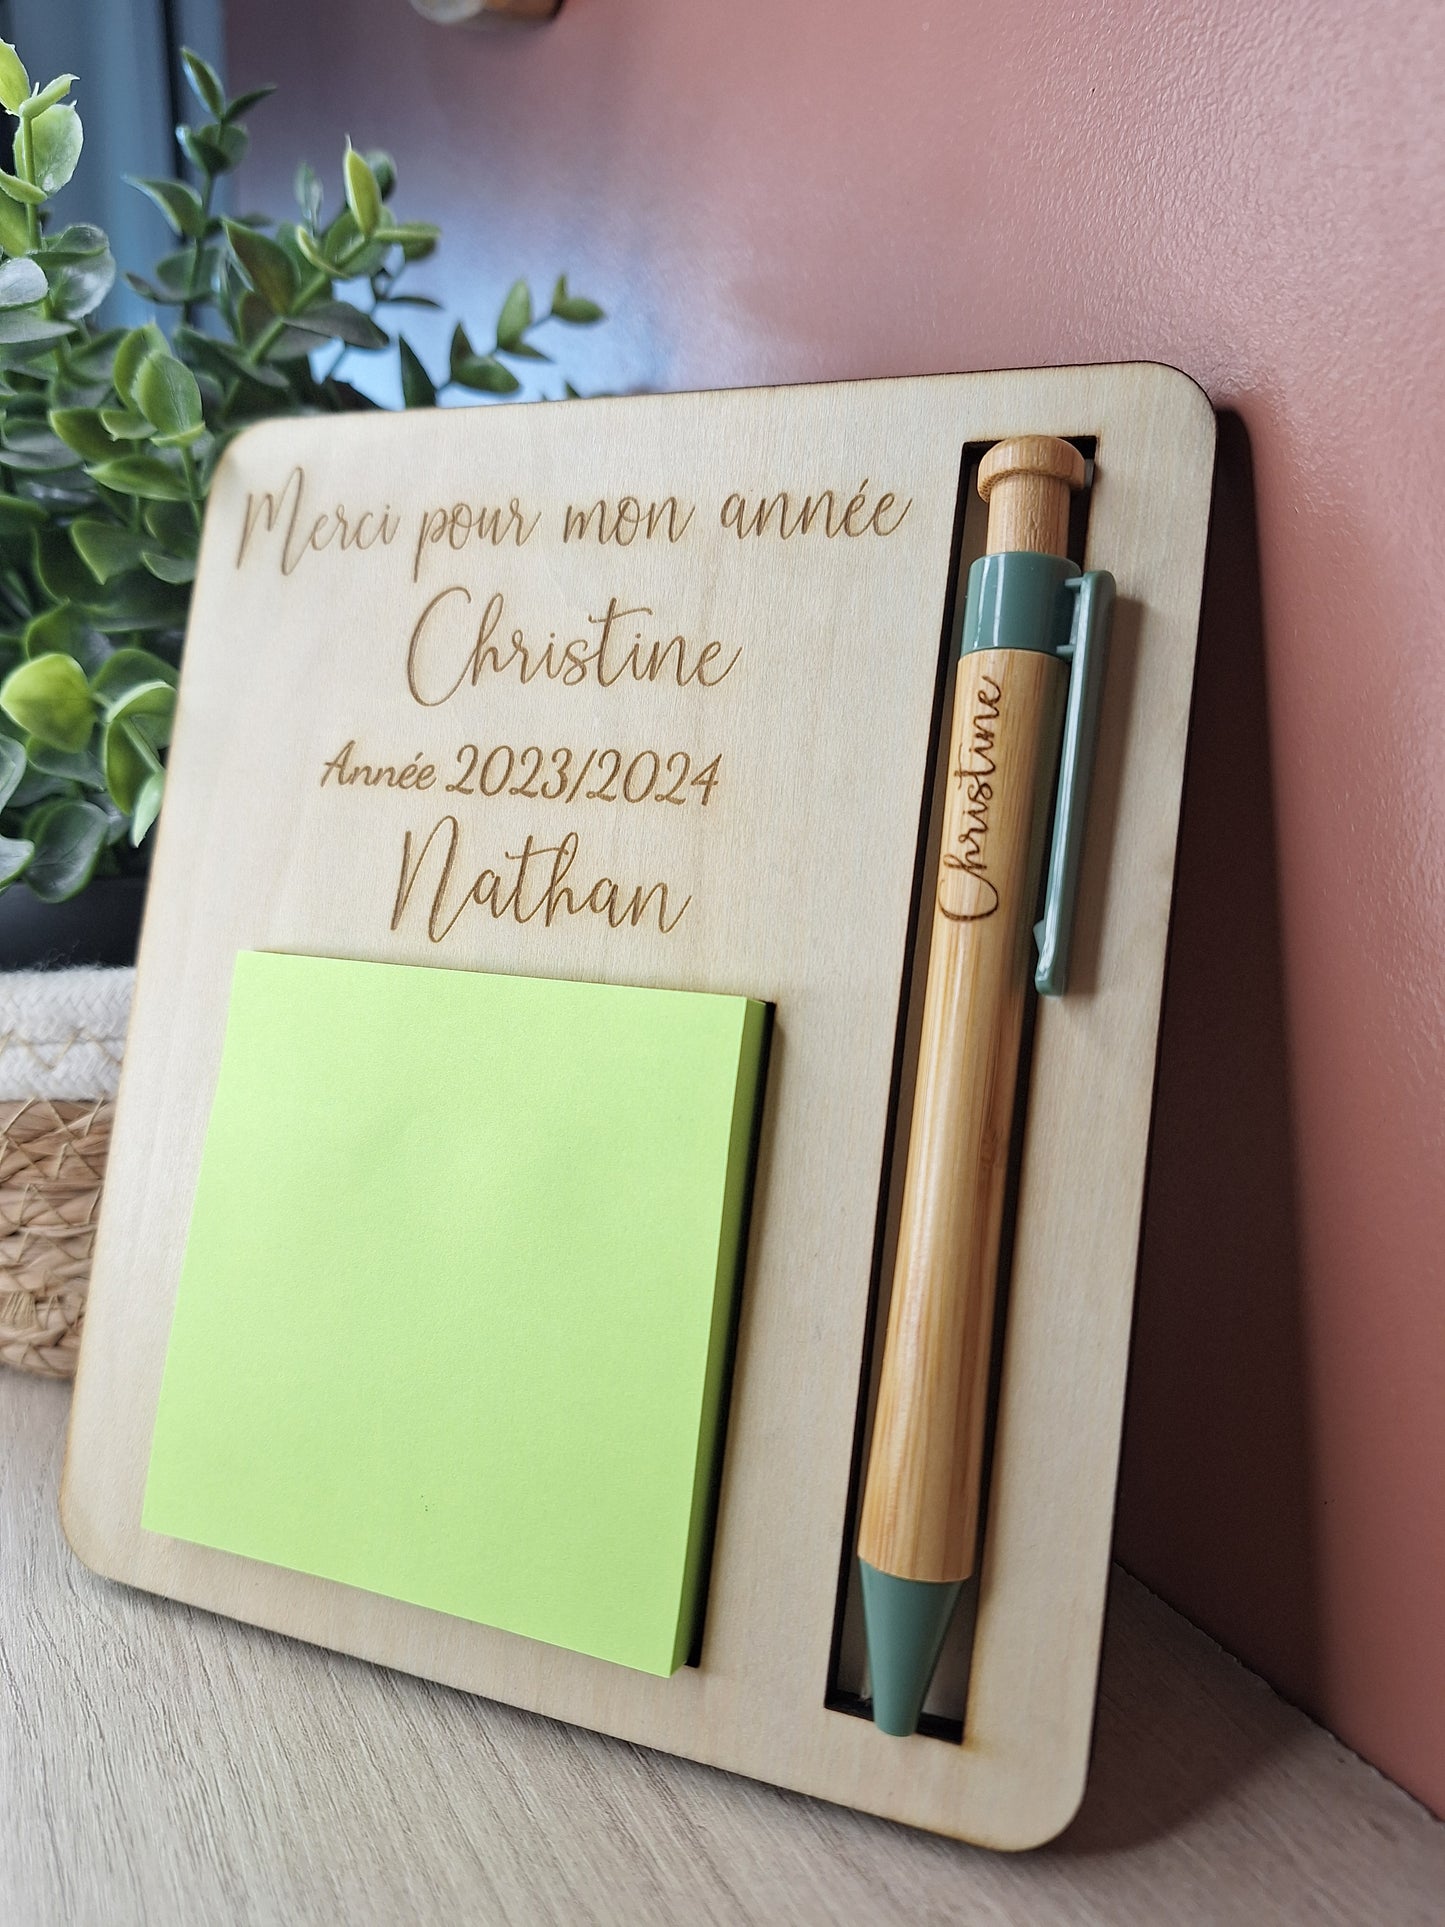 Merci pour mon année
Christine
Année 2023/2024
Nathan
Christine